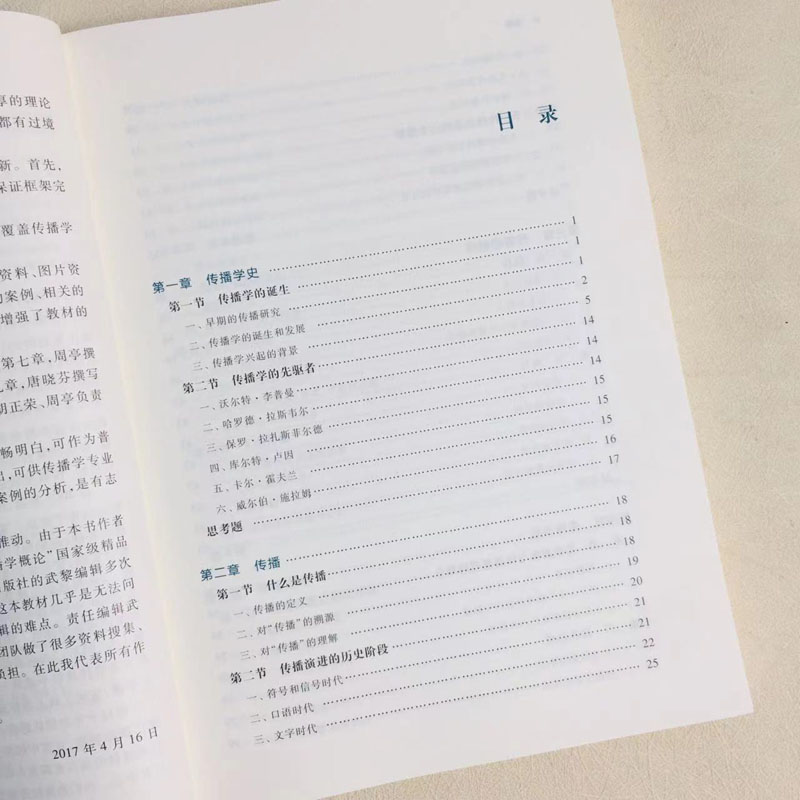 享的理论
都有过境
新。首先，
保证框架完
覆盖传播学
资料、图片资
的案例、相关的
增强了教材的
第七章，周亭撰
九章，唐晓芬撰写
胡正荣、周亭负责
畅明白，可作为普
出，可供传播学专业
案例的分析，是有志
推动。由于本书作者
播学概论”国家级精品
出版社的武黎编辑多次
这本教材几乎是无法问
辑的难点。责任编辑武
团队做了很多资料搜集、
负担。在此我代表所有作
2017 年 4 月 16 日
目 录
第一章 传播学史 1
第一节 传播学的诞生 1
一、早期的传播研究 1
二、传播学的诞生和发展 2
三、传播学兴起的背景 5
第二节 传播学的先驱者 14
一、沃尔特·李普曼 14
二、哈罗德·拉斯韦尔 15
三、保罗·拉扎斯菲尔德 15
四、库尔特·卢因 15
五、卡尔·霍夫兰 15
六、威尔伯·施拉姆 16
思考题 17
第二章 传播 18
第一节 什么是传播 18
一、传播的定义 18
二、对“传播”的溯源 19
三、对“传播”的理解 20
第二节 传播演进的历史阶段 21
一、符号和信号时代 21
二、口语时代 22
三、文字时代 25